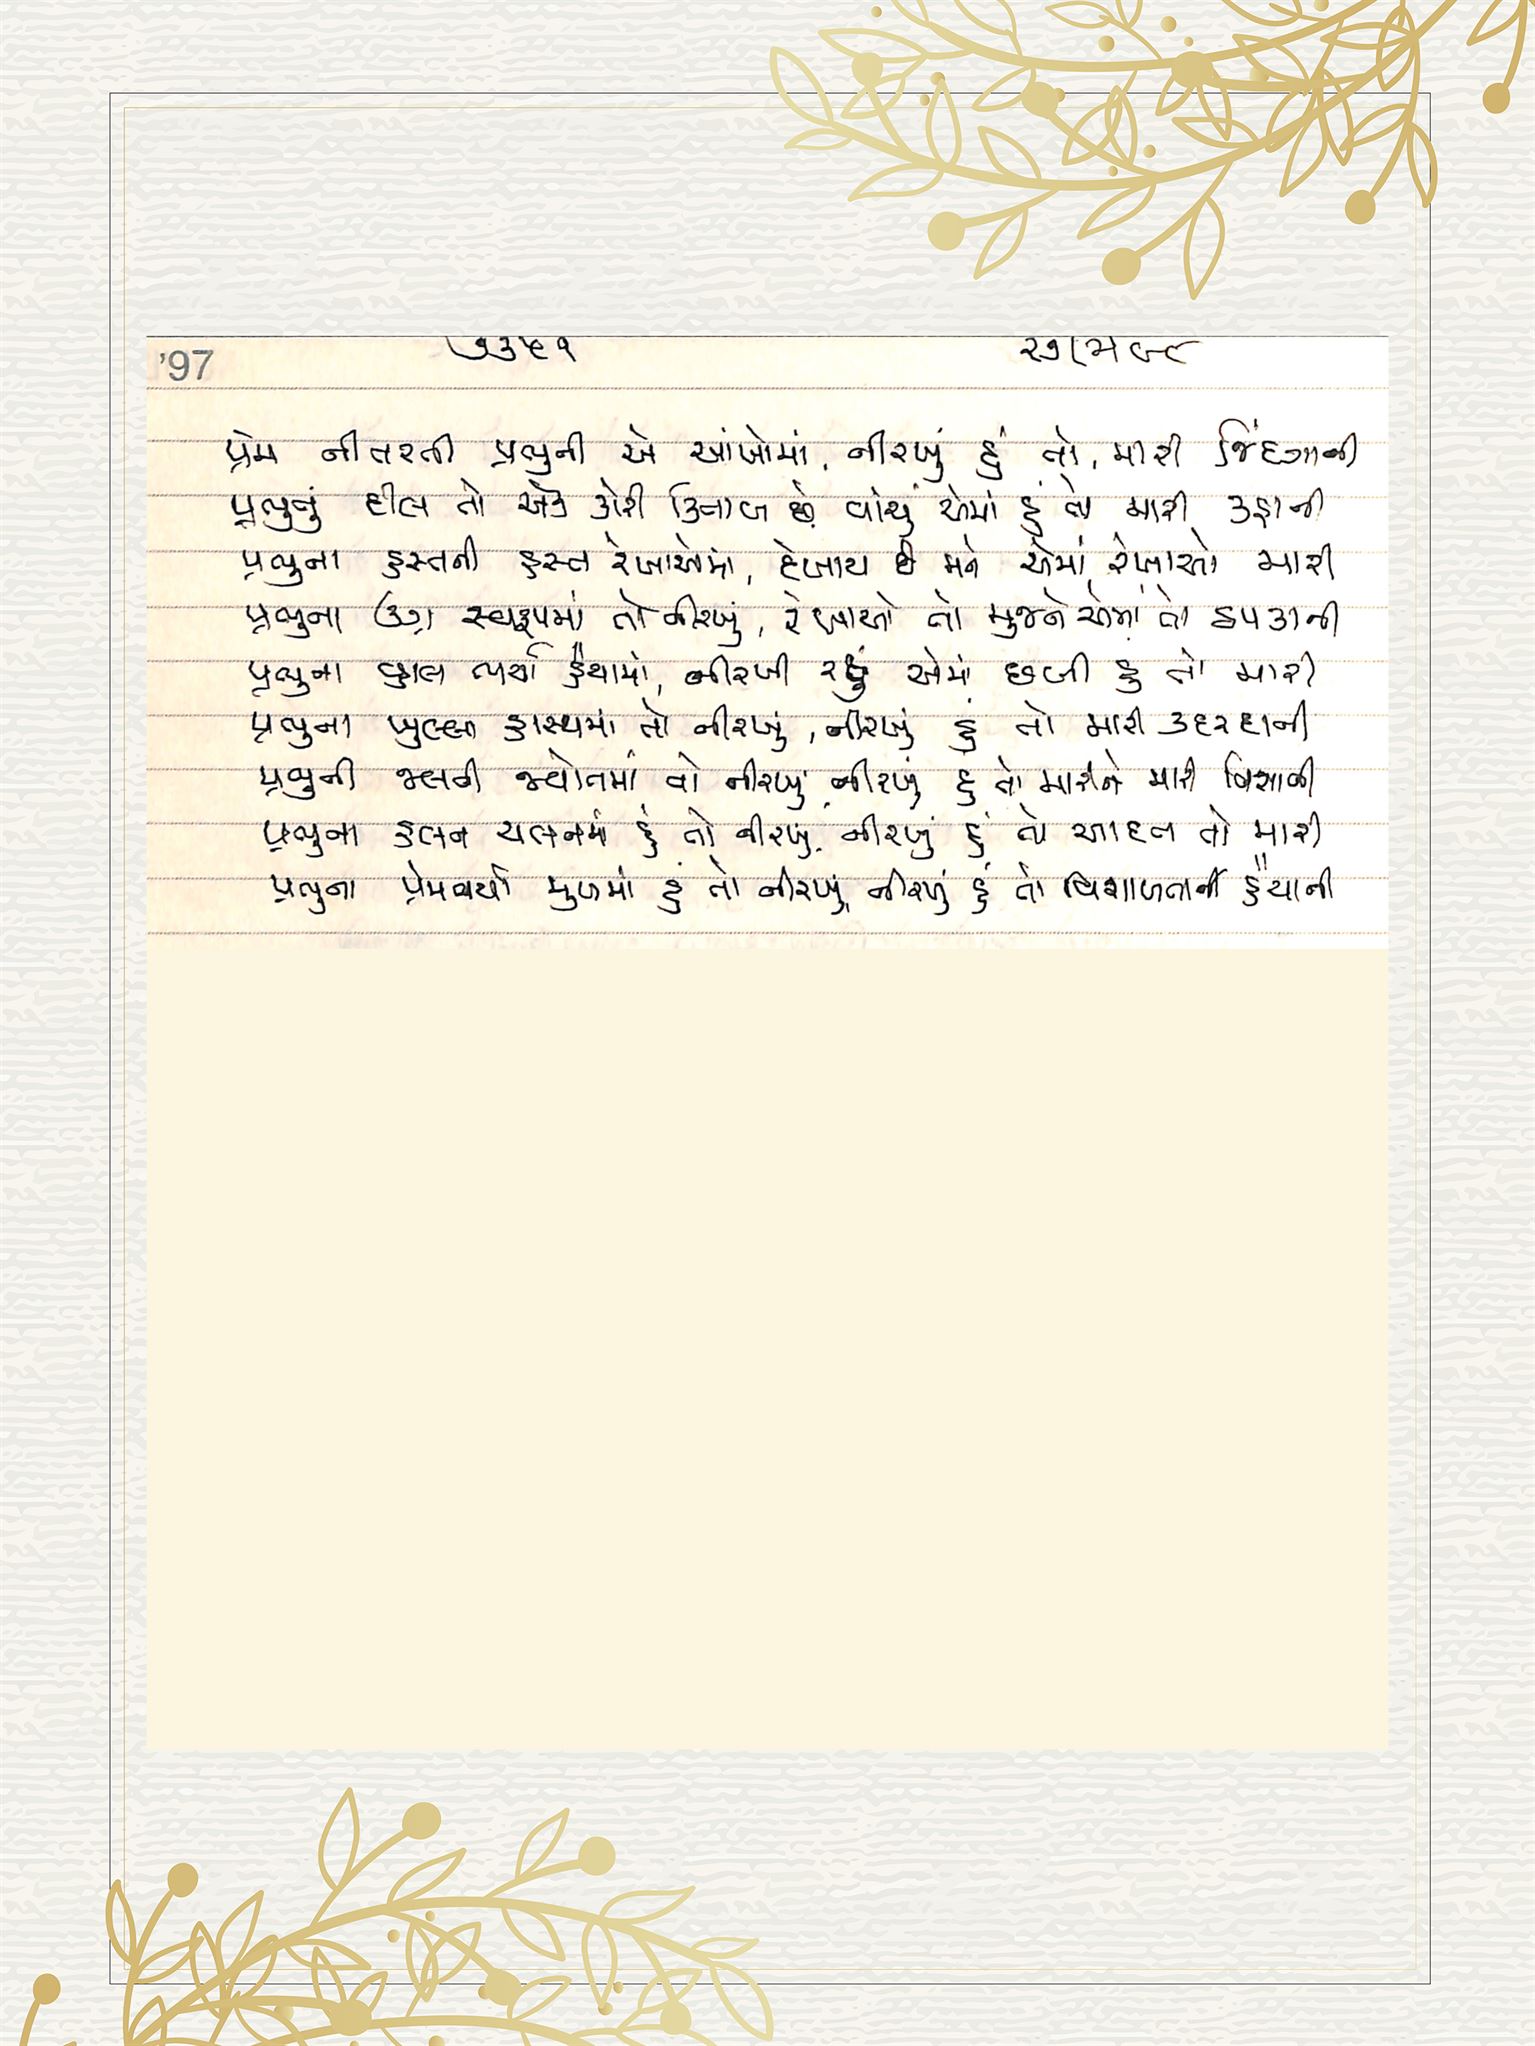 '97
૭૩૫૧
પ્રેમ નીતરતી પ્રભુની એ આંખોમાં, નીરખું હું તો, મારી જિંદગાની
પ્રભુનું દીલ તો એક કોરી કિતાબ છે વાંચું એમાં હું તો મારી કહાની
પ્રભુના હસ્તની હસ્ત રેખાએમાં, દેખાય છે મને એમાં રેખાઓ મારી
પ્રભુના ઉગ્ર સ્વરૂપમાં તો નીરખું, રેખાઓ તો મુજને એમાં તો ઠપકાની
પ્રભુના વ્હાલ ભર્યા હૈયામાં, નીરખી રહું એમાં છબી હું તો મારી
પ્રભુના ખુલ્લા હાસ્યમાં તો નીરખું, નીરખું હું તો મારી કદરદાની
પ્રભુની જલતી જ્યોતમાં તો નીરખું નીરખું હું તો મારીને મારી
પ્રભુના હલન ચલનમાં હું તો નીરખું, નીરખું હું તો આદત તો મારી
પ્રભુના પ્રેમભર્યા મુખમાં હું તો નીરખું, નીરખું હું તો વિશાળતાની હૈયાની